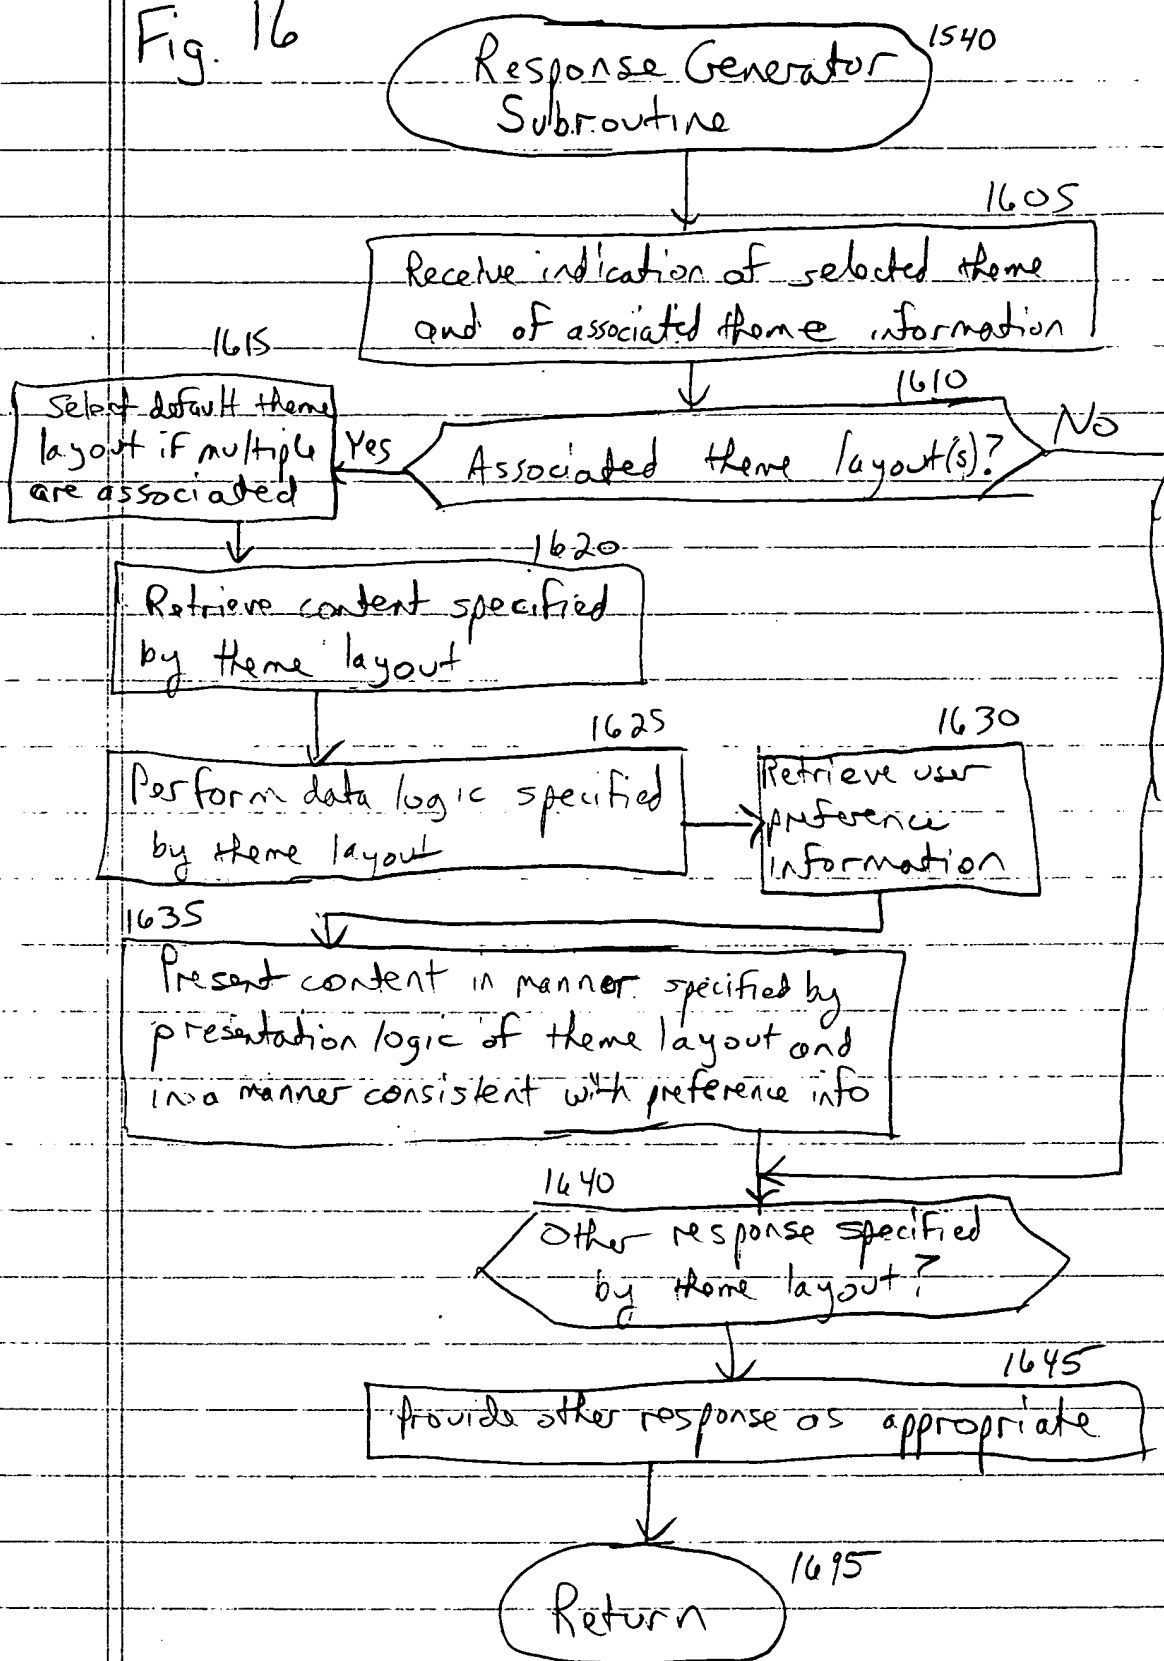 Fig. 16
1540
Response Generator
Subroutine
1605
Receive indication of selected theme
and of associated theme information
1615
1610
Select default theme
layout if multiple
are associated
Yes
Associated theme layout(s)?
No
1620
Retrieve content specified
by theme layout
1625
1630
Perform data logic specified
by theme layout
Retrieve user
preference
information
1635
Present content in manner specified by
presentation logic of theme layout and
in a manner consistent with preference info
1640
Other response specified
by theme layout?
1645
Provide other response as appropriate
1695
Return